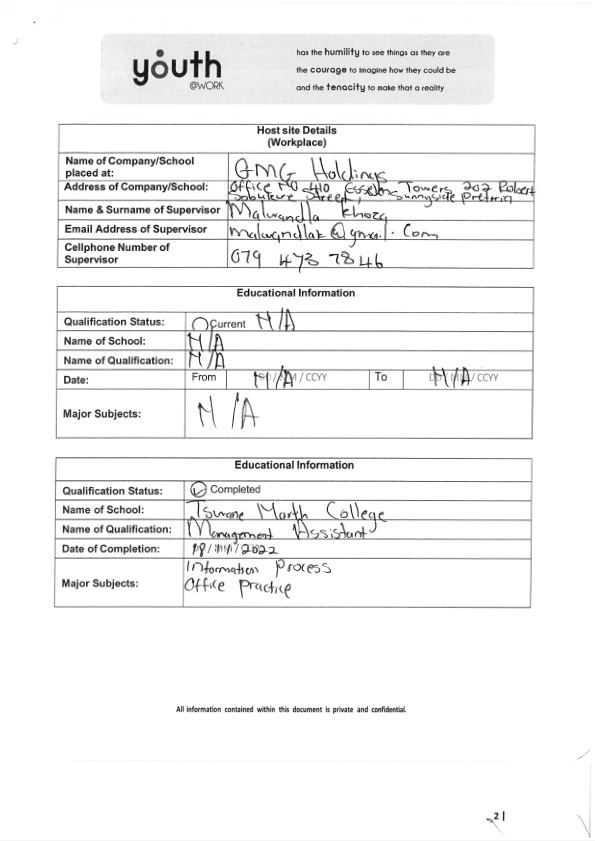 youth
@WORK
has the humility to see things as they are
the courage to imagine how they could be
and the tenacity to make that a reality
Host site Details
(Workplace)
Name of Company/School placed at: GMG Holdings
Address of Company/School: Office No 410 Esselens Towers 202 Robert
Sobukwe Street, Sunnyside Pretoria
Name & Surname of Supervisor Malwandla Khoza
Email Address of Supervisor malwandlak@gmail.com
Cellphone Number of Supervisor 079 473 7846
Educational Information
Qualification Status: Current N/A
Name of School: N/A
Name of Qualification: N/A
Date: From N/A / CCYY To N/A / CCYY
Major Subjects: N/A
Educational Information
Qualification Status: Completed
Name of School: Tswane North College
Name of Qualification: Management Assistant
Date of Completion: /2022
Major Subjects: Information Process
Office Practice
All information contained within this document is private and confidential.
2 |